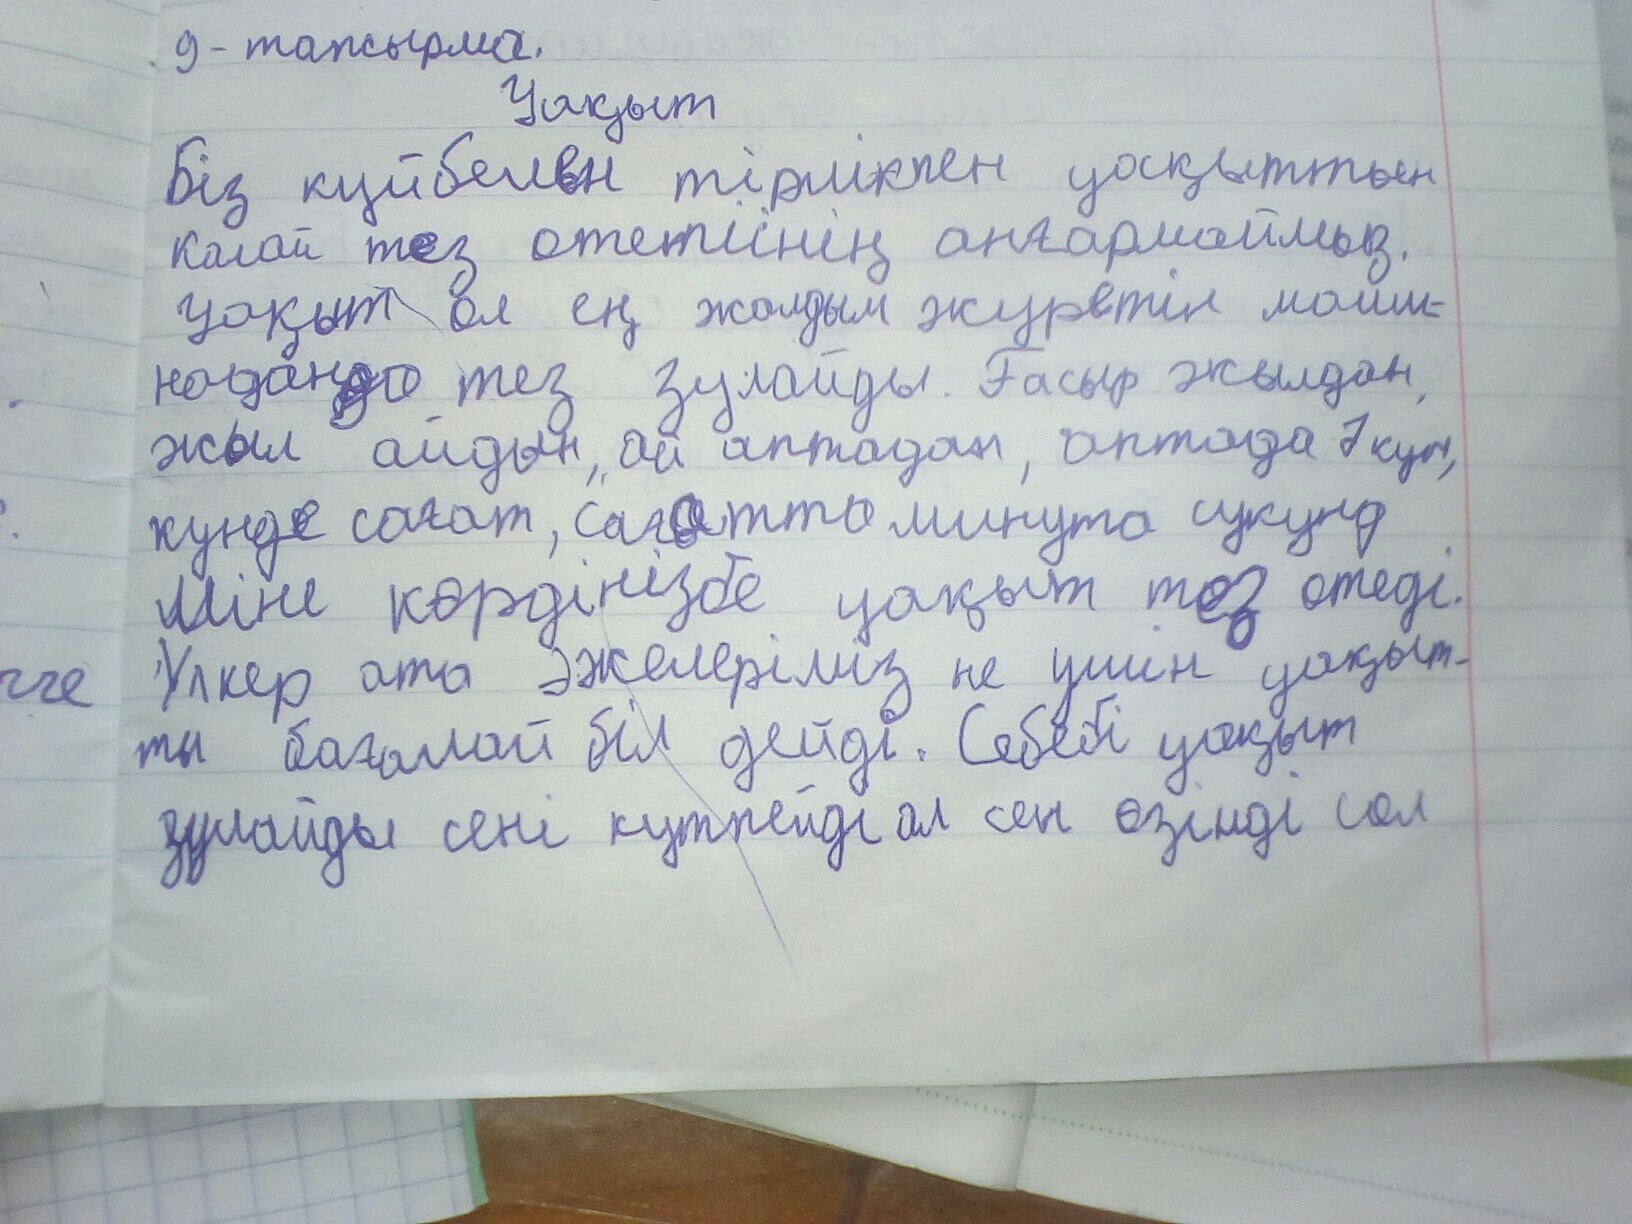 9-тапсырма.
Уақыт
Біз күйбелең тірлікпен уақыттың
калай тез өтетіінің аңғармаймыз.
Уақыт ол ең жалдым жүретін маши-
наданда тез зулайды. Ғасыр жылдан,
жыл айдын, ай аптадан, аптада 7 күн,
күнде сағат, сағатта минута сукунд
Міне көрдінізбе уақыт тез өтеді.
Үлкер ата әжелеріміз не үшін уақыт-
ты бағалай біл дейді. Себебі уақыт
зулайды сені күтпейді ал сен өзінді сол
гге